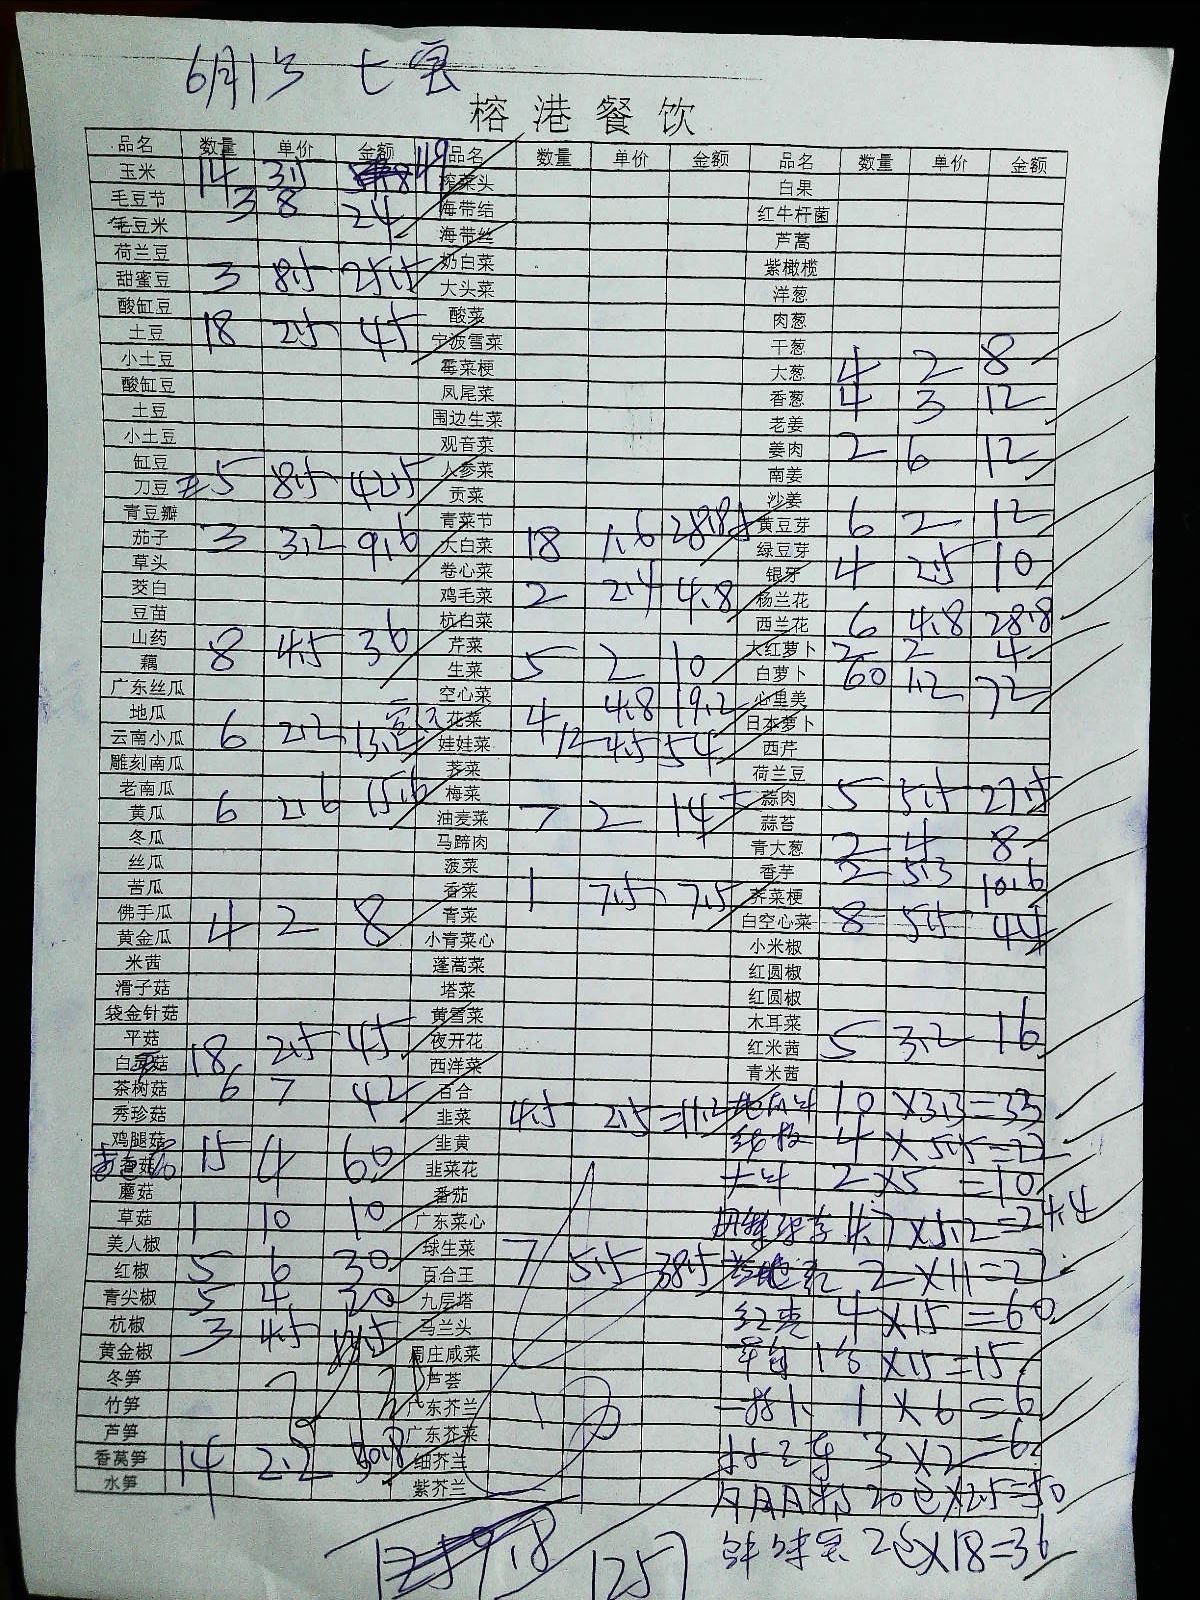 6月1号
榕港餐饮
品名 数量 单价 金额 品名 数量 单价 金额 品名 数量 单价 金额
玉米 14 3.5 119 榨菜头 白果
毛豆节 3 8 24 海带结 红牛杆菌
毛豆米 海带丝 芦蒿
荷兰豆 奶白菜 紫橄榄
甜蜜豆 3 8.5 25.5 大头菜 洋葱
酸缸豆 酸菜 肉葱
土豆 18 2.5 45 宁波雪菜 干葱
小土豆 霉菜梗 大葱 4 2 8
酸缸豆 凤尾菜 香葱 4 3 12
土豆 围边生菜 老姜
小土豆 观音菜 姜肉 2 6 12
缸豆 人参菜 南姜
刀豆 5 8.5 42.5 贡菜 沙姜
青豆瓣 青菜节 黄豆芽 6 2 12
茄子 3 3.2 9.6 大白菜 18 1.6 28.8 绿豆芽
草头 卷心菜 银牙 4 2.5 10
茭白 鸡毛菜 2 2.4 4.8 杨兰花
豆苗 杭白菜 西兰花 6 4.8 28.8
山药 芹菜 大红萝卜 2 2 4
藕 8 4.5 36 生菜 5 2 10 白萝卜 60 1.2 72
广东丝瓜 空心菜 心里美
地瓜 花菜 4 4.8 19.2 日本萝卜
云南小瓜 6 2.2 13.2 娃娃菜 12 4.5 54 西芹
雕刻南瓜 荠菜 荷兰豆
老南瓜 梅菜 蒜肉 5 5.5 27.5
黄瓜 6 2.6 15.6 油麦菜 7 2 14 蒜苔
冬瓜 马蹄肉 青大葱 2 4 8
丝瓜 菠菜 香芋 2 5.3 10.6
苦瓜 香菜 1 7.5 7.5 荠菜梗
佛手瓜 青菜 白空心菜 8 5.5 44
黄金瓜 4 2 8 小青菜心 小米椒
米茜 蓬蒿菜 红圆椒
滑子菇 塔菜 红圆椒
袋金针菇 黄雪菜 木耳菜
平菇 夜开花 红米茜 5 3.2 16
白菇 18 2.5 45 西洋菜 青米茜
茶树菇 6 7 42 百合 10×3.3=33
秀珍菇 韭菜 4.5 2.5=11.2
鸡腿菇 韭黄 4×5.5=22
香菇 15 4 60 韭菜花 2×5=10
蘑菇 番茄
草菇 1 10 10 广东菜心 4.7×5.2=24.4
美人椒 球生菜 7 5.5 38.5 2×11=22
红椒 5 6 30 百合王
青尖椒 5 4 20 九层塔 4×15=60
杭椒 3 4.5 马兰头
黄金椒 周庄咸菜 ×15=15
冬笋 芦荟
竹笋 广东芥兰 1×6=6
芦笋 广东芥菜 3×2=6
香莴笋 14 2.2 30.8 细芥兰
水笋 紫芥兰 20包×2.5=50
1257 2包×18=36